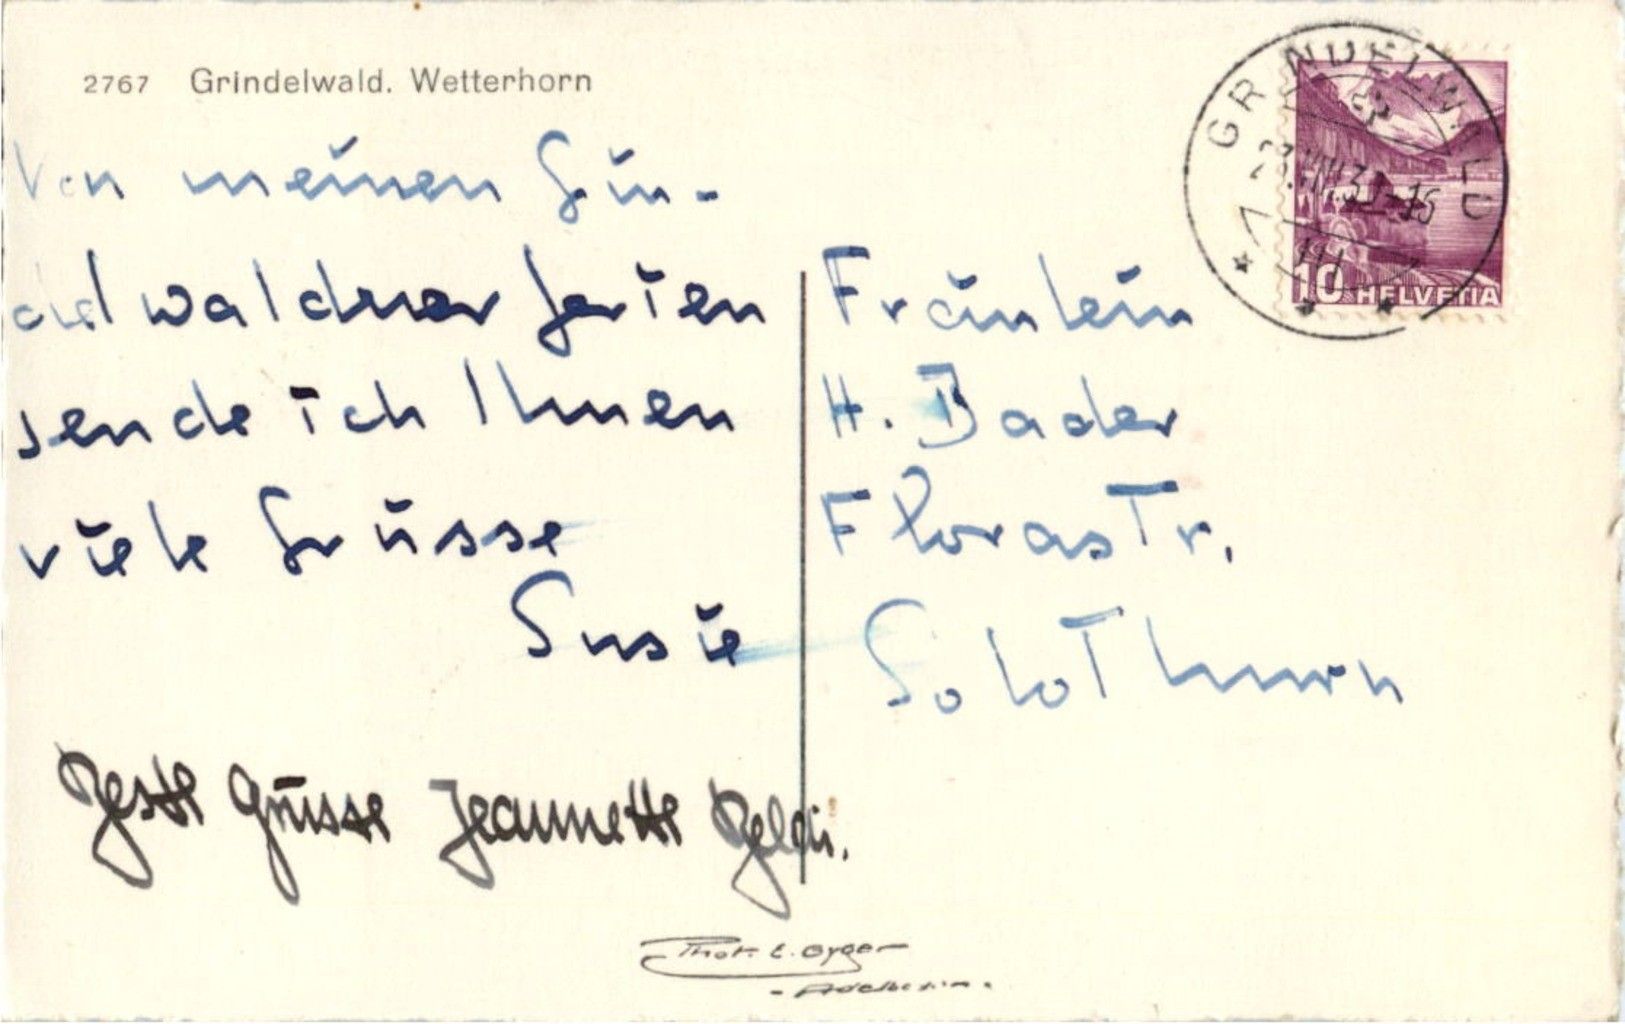 2767 Grindelwald. Wetterhorn
GRINDELWALD
10 HELVETIA
Von meinen Grin-
delwaldner Ferien
sende ich Ihnen
viele Grüsse
Susie
Beste Grüsse Jeannette
Fräulein
H. Bader
Florastr.
Solothurn
Phot. E. Gyger
- Adelboden -